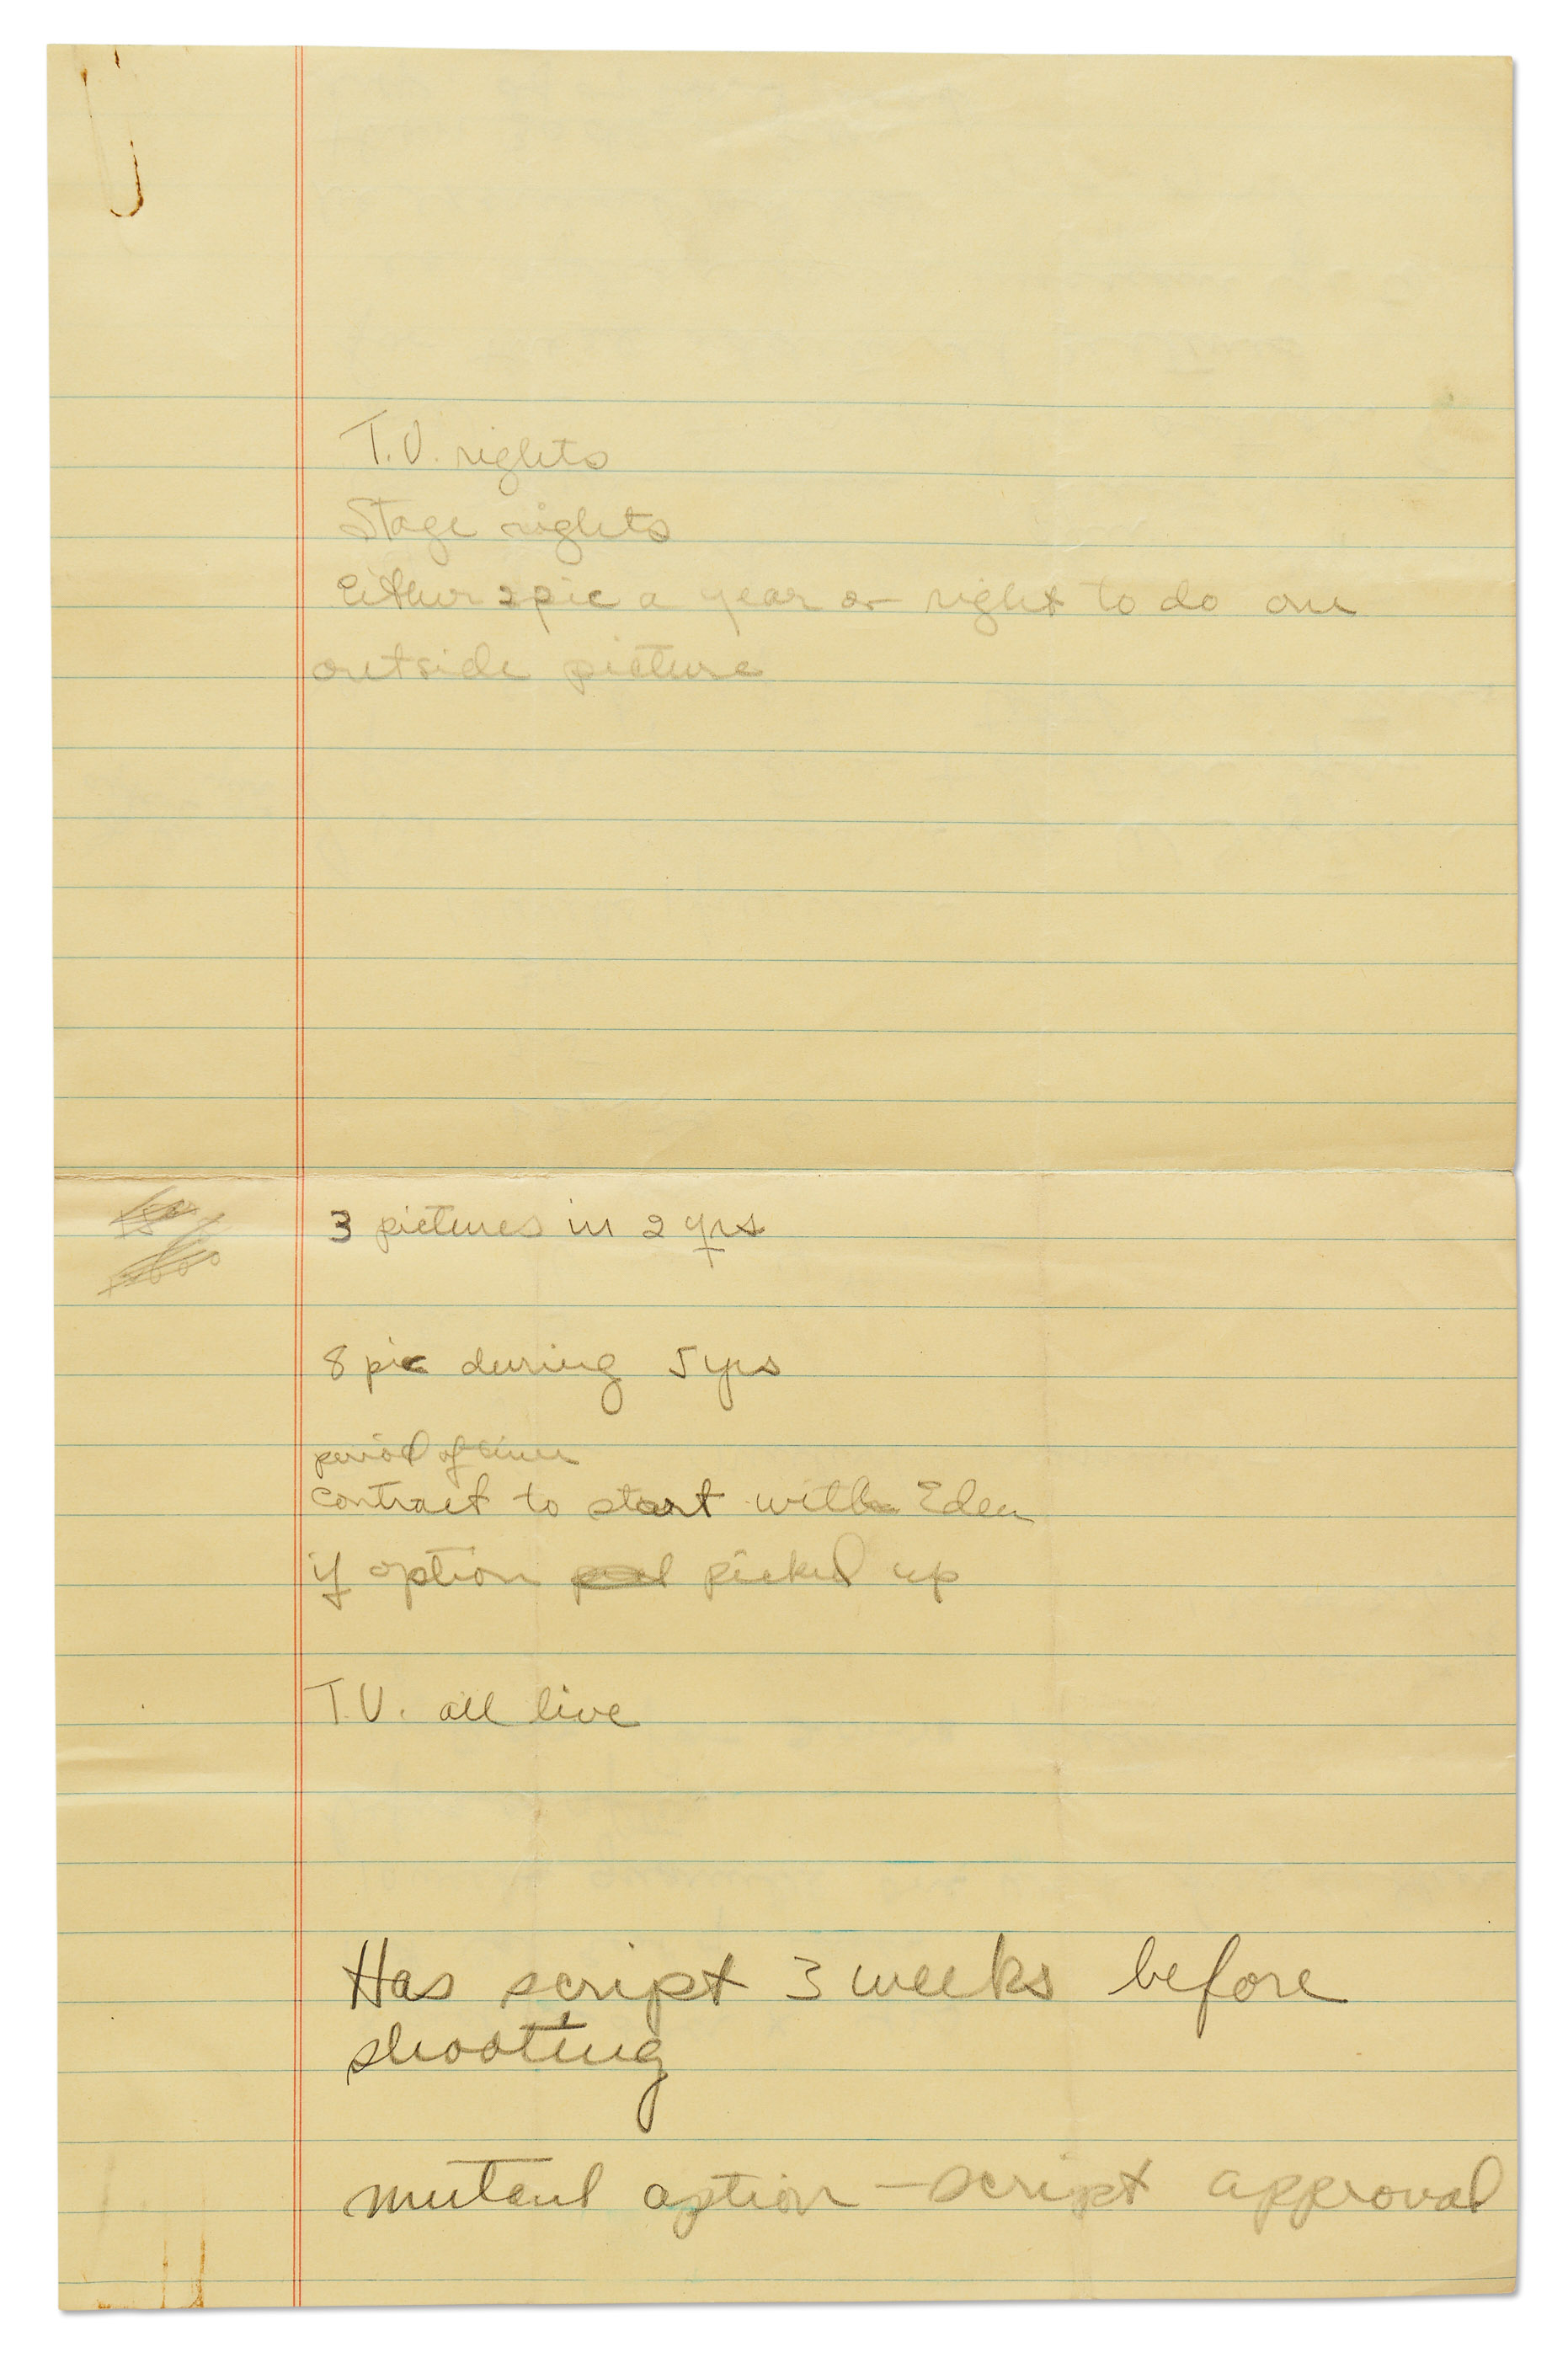 T.V. rights
Stage rights
Either 2 pic a year or right to do one
outside picture
3 pictures in 2 yrs
8 pic during 5 yrs
period of time
contract to start with Eden
if option picked up
T.V. all live
Has script 3 weeks before
shooting
mutual option - script approval